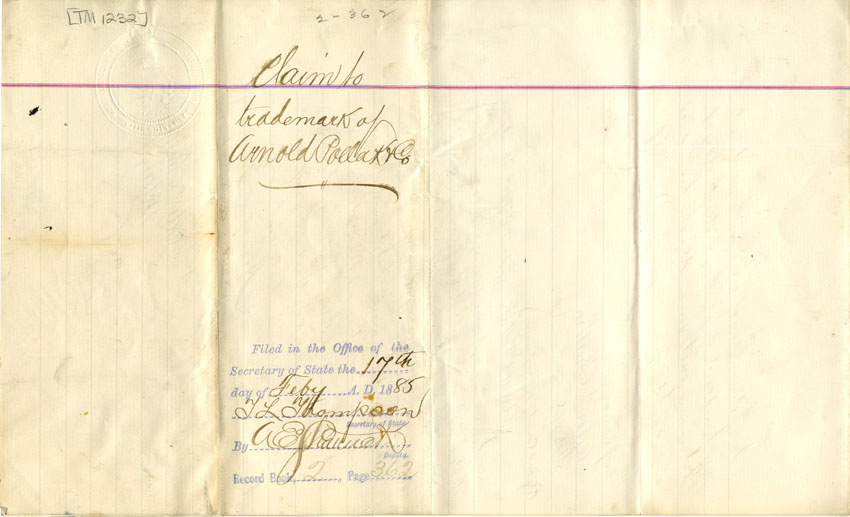 [TM 1232]
2-362
Claim to
trademark of
Arnold Pollak & Co
Filed in the Office of the
Secretary of State the 17th
day of Feby A. D. 1885
T L Thompson
Secretary of State
By A E
Deputy.
Record Book, 2, Page 362